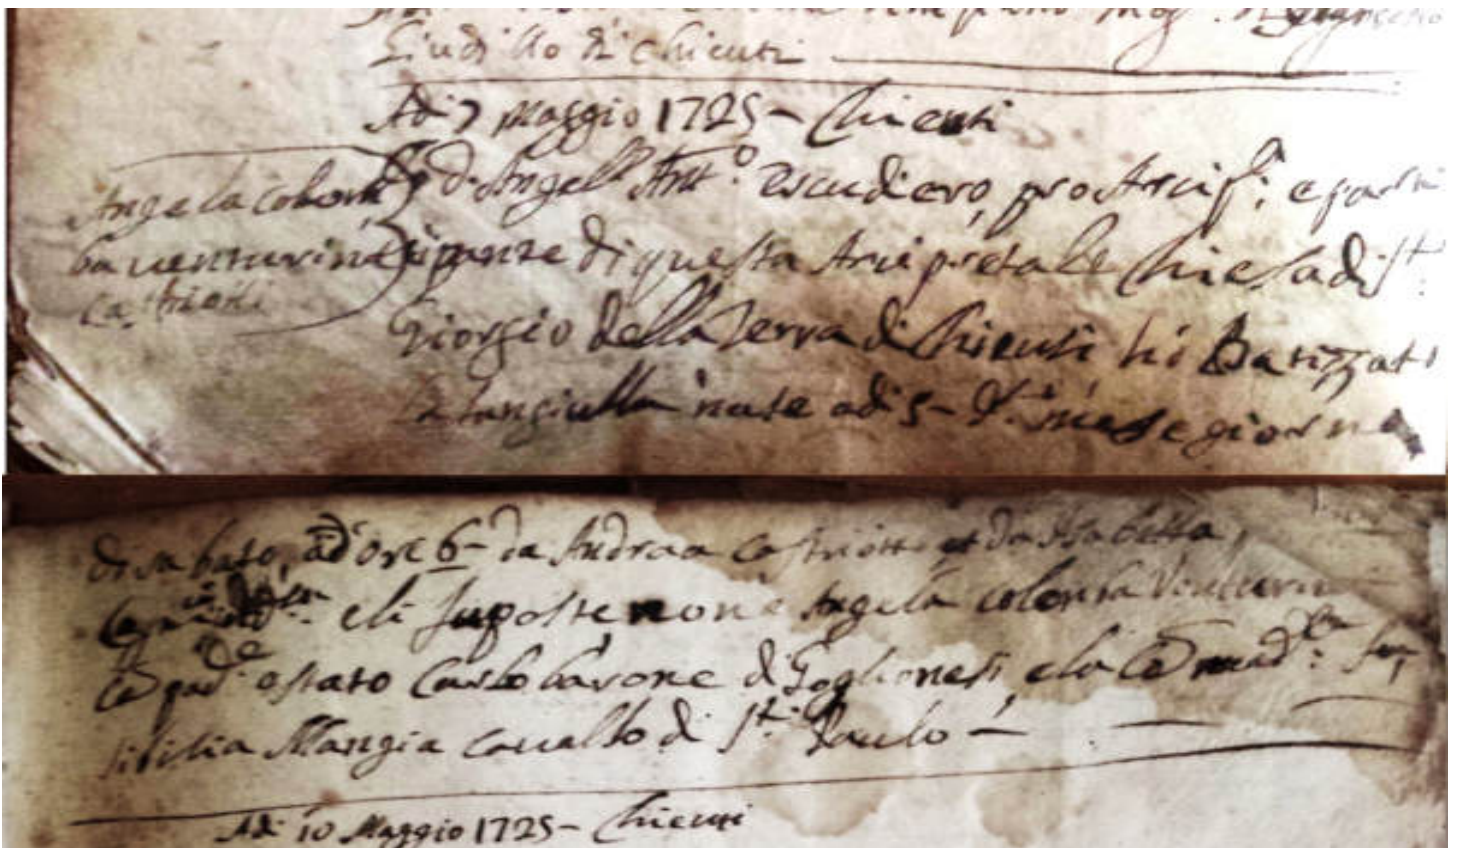 Giudillo di Chieuti
Adi 7 Maggio 1725 – Chieuti
Angela colonna
ba venturina
Castrioti
D. Angell' Ant.o escudiero, pro Arcip.: e parti
cipante di questa Arcipretale Chiesa di S.t
Giorgio della Terra di Chieuti hò Batizzato
la fangiulla nata adi 5 – d.o mese giorno
di sabato, ad ore 6 – da Andrea Castriotti, et da Isabetta
eli fu poste nome Angela colonna Venturina
Cō pad.e è stato Carlo barone di Goglionesi, e la Cō mad.
Sibilia Mangia cavallo di S.t Paulo –
Adi 10 Maggio 1725 – Chieuti